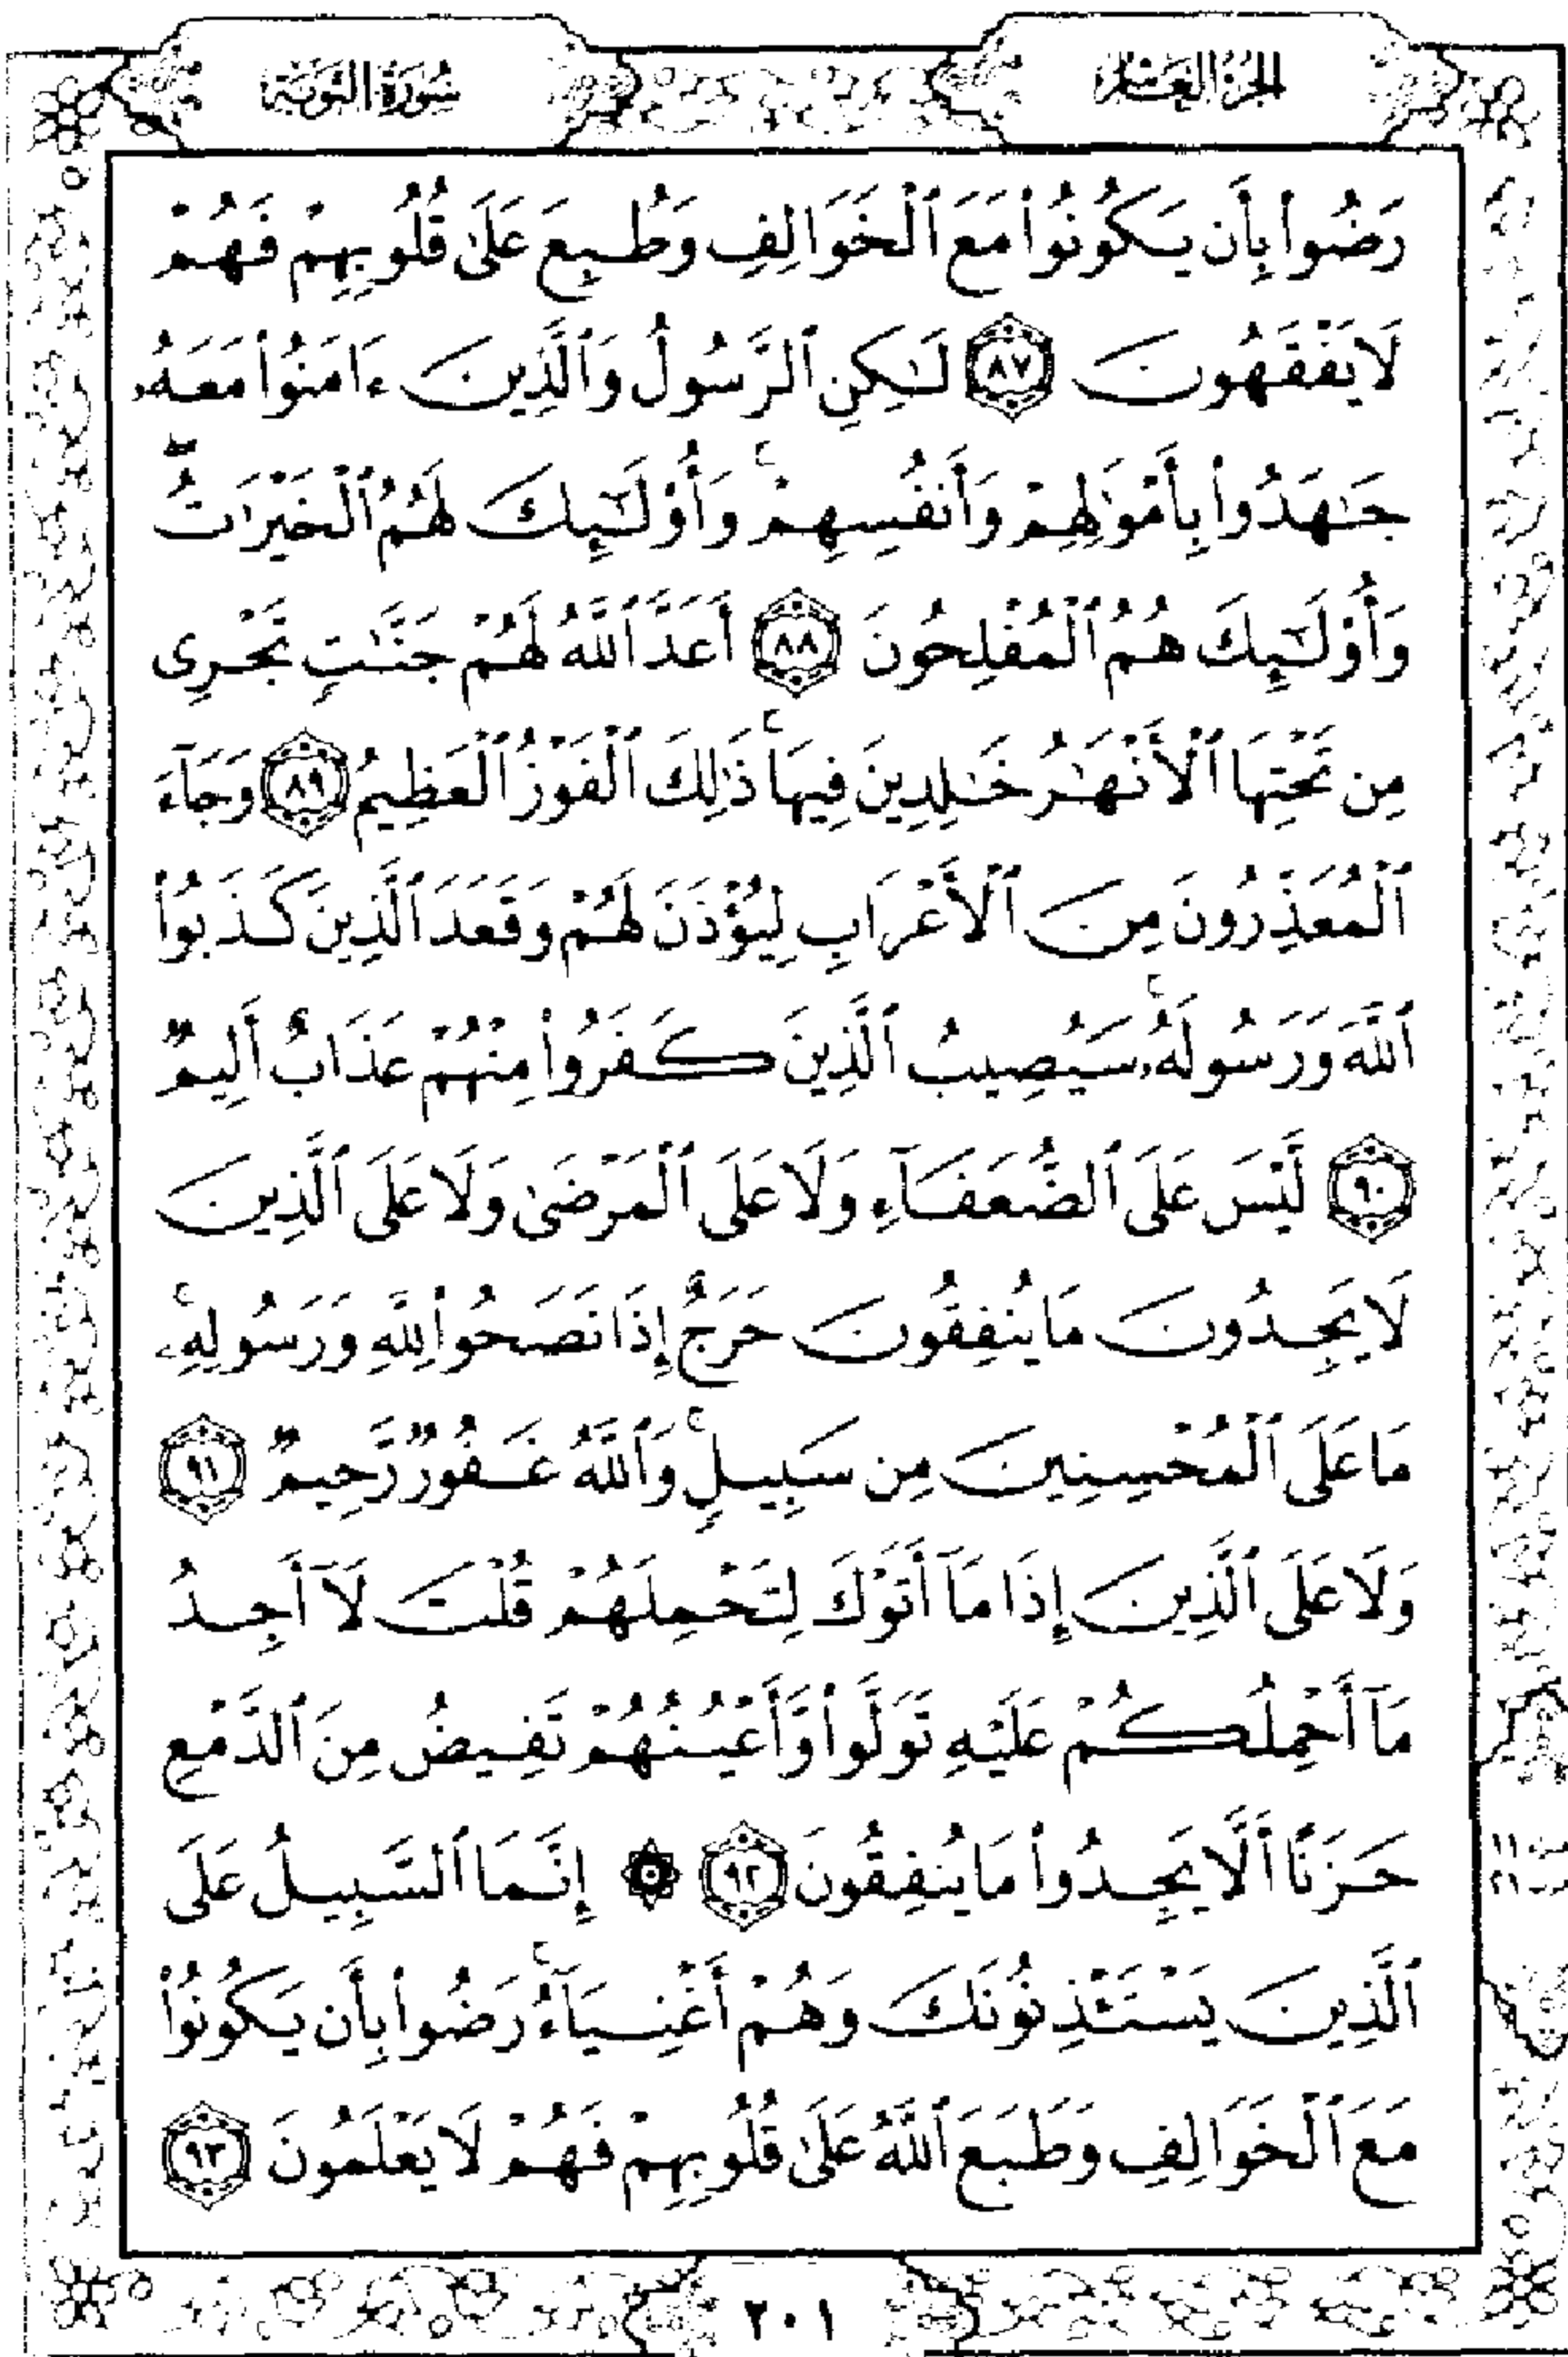 الجزء العاشر
سورة التوبة
رَضُوا۟ بِأَن يَكُونُوا۟ مَعَ ٱلْخَوَالِفِ وَطُبِعَ عَلَىٰ قُلُوبِهِمْ فَهُمْ
لَا يَفْقَهُونَ ٨٧ لَـٰكِنِ ٱلرَّسُولُ وَٱلَّذِينَ ءَامَنُوا۟ مَعَهُۥ
جَـٰهَدُوا۟ بِأَمْوَٰلِهِمْ وَأَنفُسِهِمْ ۚ وَأُو۟لَـٰٓئِكَ لَهُمُ ٱلْخَيْرَٰتُ ۖ
وَأُو۟لَـٰٓئِكَ هُمُ ٱلْمُفْلِحُونَ ٨٨ أَعَدَّ ٱللَّهُ لَهُمْ جَنَّـٰتٍ تَجْرِى
مِن تَحْتِهَا ٱلْأَنْهَـٰرُ خَـٰلِدِينَ فِيهَا ۚ ذَٰلِكَ ٱلْفَوْزُ ٱلْعَظِيمُ ٨٩ وَجَآءَ
ٱلْمُعَذِّرُونَ مِنَ ٱلْأَعْرَابِ لِيُؤْذَنَ لَهُمْ وَقَعَدَ ٱلَّذِينَ كَذَبُوا۟
ٱللَّهَ وَرَسُولَهُۥ ۚ سَيُصِيبُ ٱلَّذِينَ كَفَرُوا۟ مِنْهُمْ عَذَابٌ أَلِيمٌ
٩٠ لَّيْسَ عَلَى ٱلضُّعَفَآءِ وَلَا عَلَى ٱلْمَرْضَىٰ وَلَا عَلَى ٱلَّذِينَ
لَا يَجِدُونَ مَا يُنفِقُونَ حَرَجٌ إِذَا نَصَحُوا۟ لِلَّهِ وَرَسُولِهِۦ ۚ
مَا عَلَى ٱلْمُحْسِنِينَ مِن سَبِيلٍ ۚ وَٱللَّهُ غَفُورٌ رَّحِيمٌ ٩١
وَلَا عَلَى ٱلَّذِينَ إِذَا مَآ أَتَوْكَ لِتَحْمِلَهُمْ قُلْتَ لَآ أَجِدُ
مَآ أَحْمِلُكُمْ عَلَيْهِ تَوَلَّوا۟ وَّأَعْيُنُهُمْ تَفِيضُ مِنَ ٱلدَّمْعِ
حَزَنًا أَلَّا يَجِدُوا۟ مَا يُنفِقُونَ ٩٢ ۞ إِنَّمَا ٱلسَّبِيلُ عَلَى
ٱلَّذِينَ يَسْتَـْٔذِنُونَكَ وَهُمْ أَغْنِيَآءُ ۚ رَضُوا۟ بِأَن يَكُونُوا۟
مَعَ ٱلْخَوَالِفِ وَطَبَعَ ٱللَّهُ عَلَىٰ قُلُوبِهِمْ فَهُمْ لَا يَعْلَمُونَ ٩٣
٢٠١